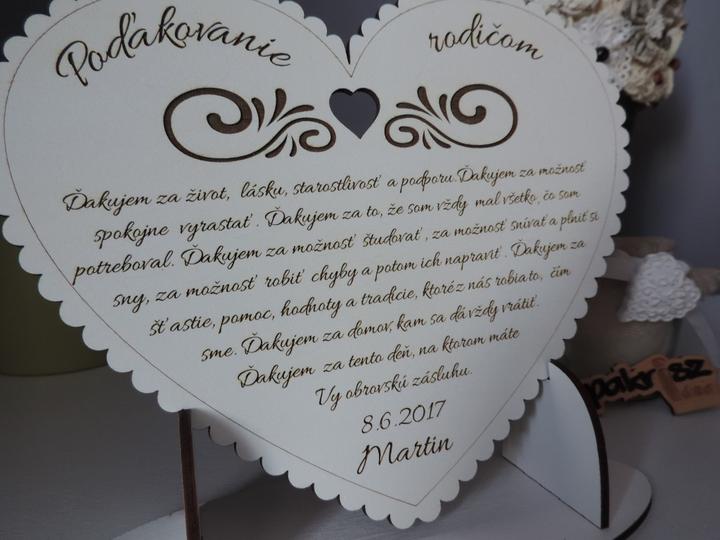 Poďakovanie rodičom
Ďakujem za život, lásku, starostlivosť a podporu. Ďakujem za možnosť
spokojne vyrastať. Ďakujem za to, že som vždy mal všetko, čo som
potreboval. Ďakujem za možnosť študovať, za možnosť snívať a plniť si
sny, za možnosť robiť chyby a potom ich napraviť. Ďakujem za
šťastie, pomoc, hodnoty a tradície, ktoré z nás robia to, čím
sme. Ďakujem za domov, kam sa dá vždy vrátiť.
Ďakujem za tento deň, na ktorom máte
Vy obrovskú zásluhu.
8.6.2017
Martin